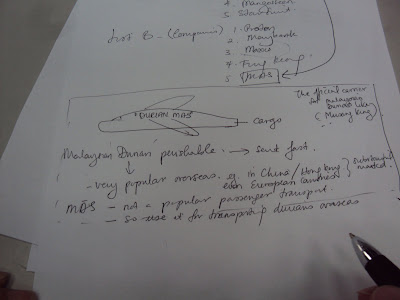 4. Mangosteen
List B - (Companies) 1. Proton
2. Maybank
3. Maxis
5. MAS
The official carrier
for malaysian
durians like
(Musang King)
"DURIAN MAS"
cargo
Malaysian Durian perishable. → sent fast.
- very popular overseas. eg. in China / Hong Kong
even European countries
MAS - not a popular passenger transport.
- so use it for transporting durians overseas